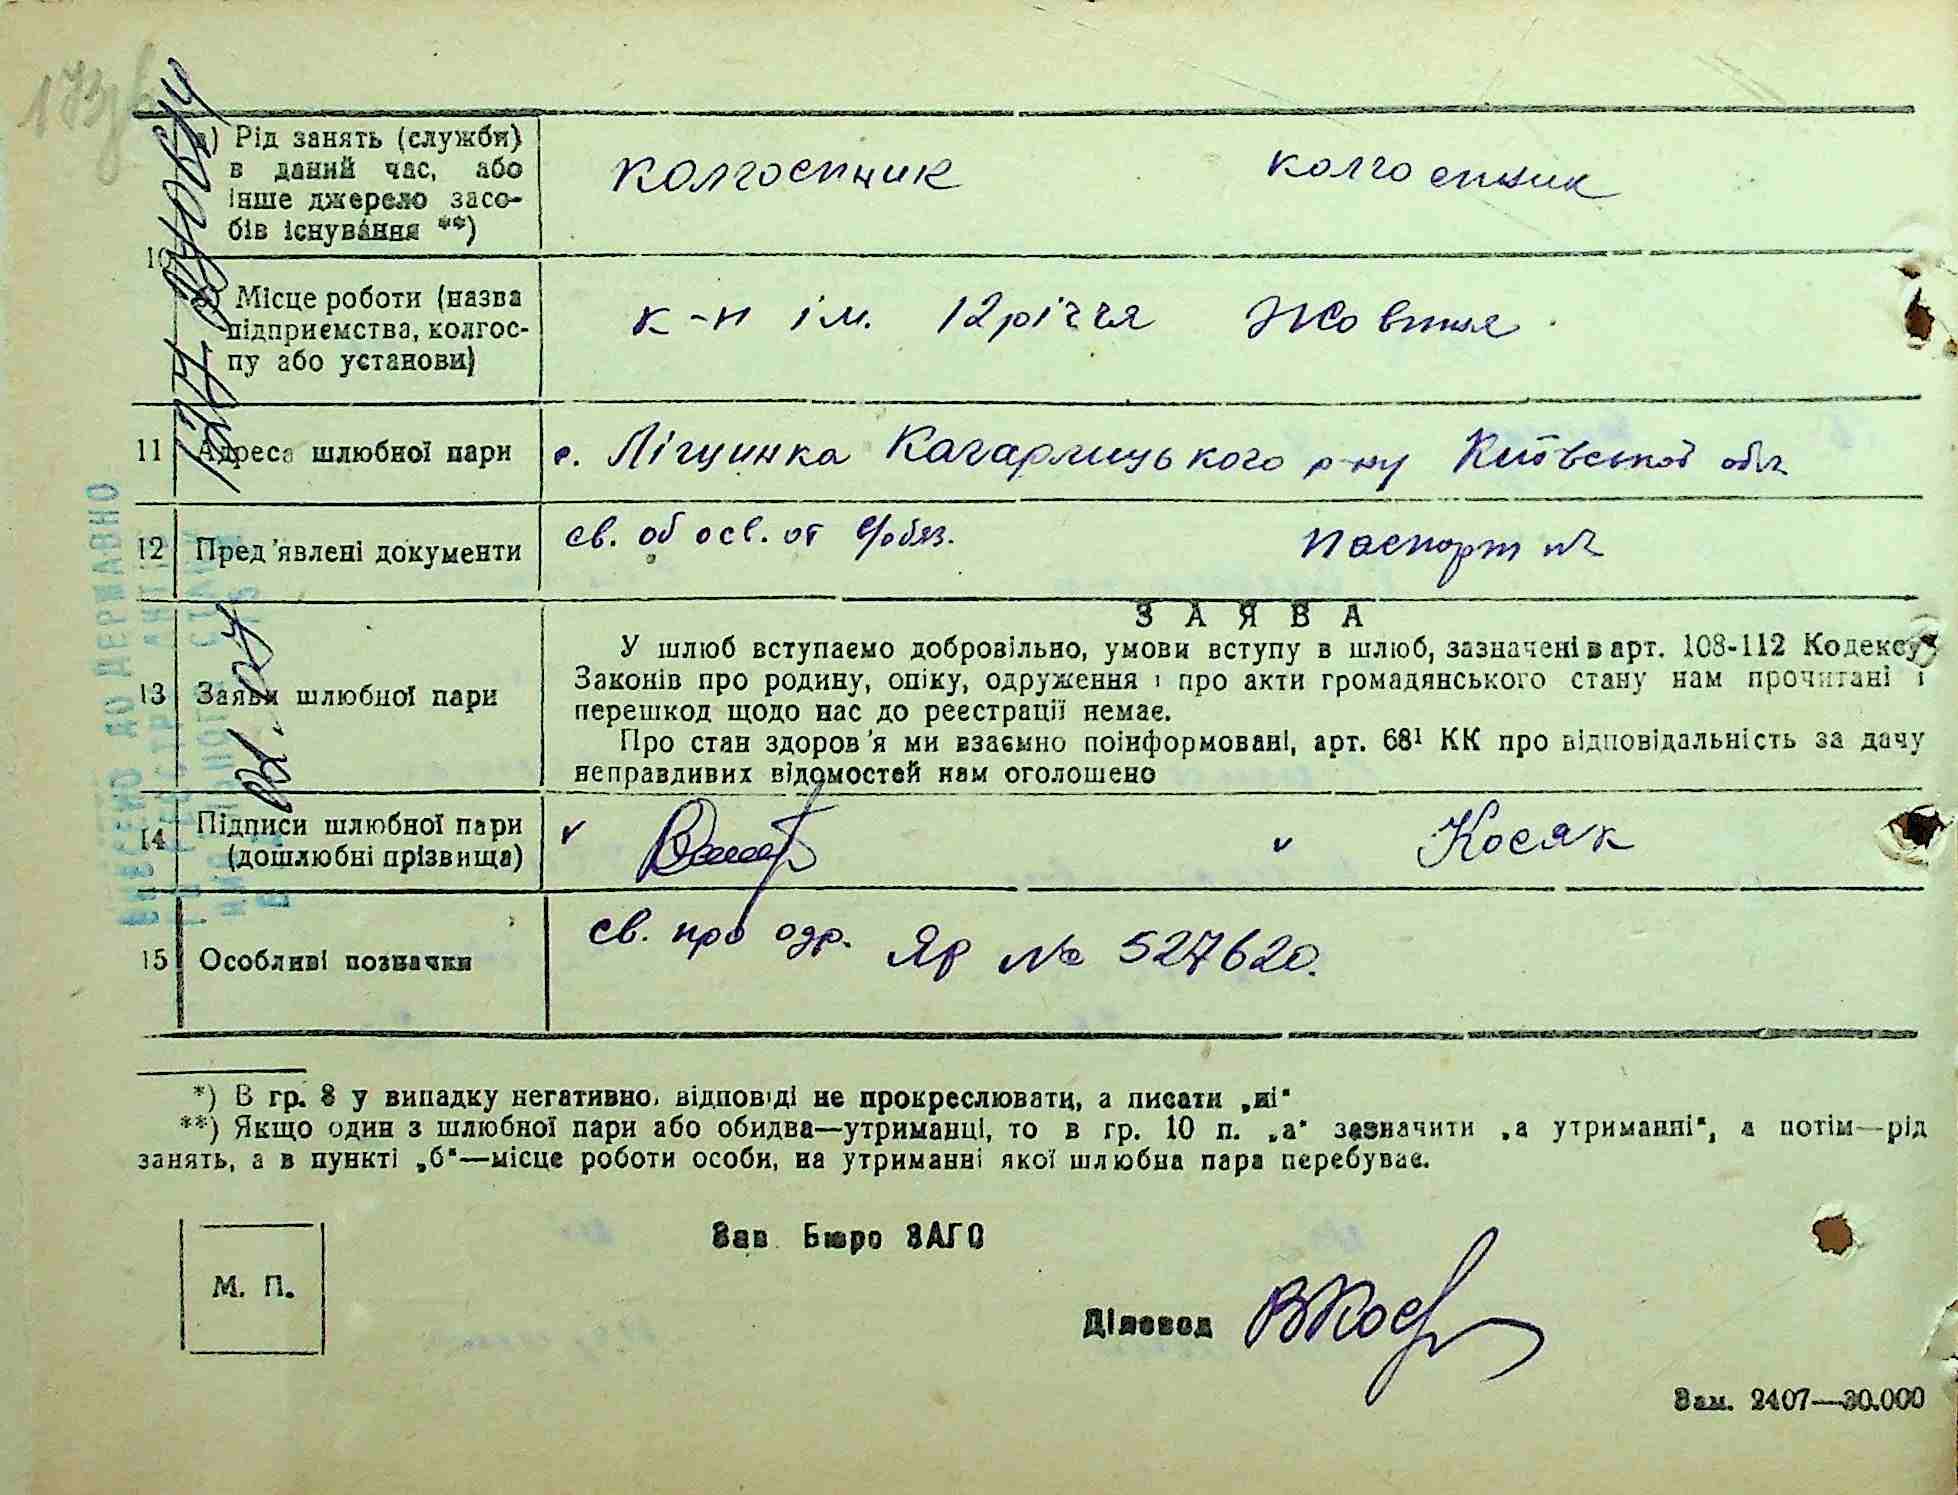 а) Рід занять (служби)
в даний час, або
інше джерело засо-
бів існування **)
колгоспник колгоспник
10
б) Місце роботи (назва
підприємства, колгос-
пу або установи)
к-п ім. 12річчя Жовтня
11 Адреса шлюбної пари
с. Ліщинка Кагарлицького р-ну Київської обл
12 Пред'явлені документи
св. об осв. от в/обяз. паспорт
13 Заяви шлюбної пари
ЗАЯВА
У шлюб вступаємо добровільно, умови вступу в шлюб, зазначені в арт. 108-112 Кодексу
Законів про родину, опіку, одруження і про акти громадянського стану нам прочитані і
перешкод щодо нас до реєстрації немає.
Про стан здоров'я ми взаємно поінформовані, арт. 68¹ КК про відповідальність за дачу
неправдивих відомостей нам оголошено
14 Підписи шлюбної пари
(дошлюбні прізвища)
Косяк
15 Особливі позначки
св. про одр. Яр № 527620.
*) В гр. 8 у випадку негативно, відповіді не прокреслювати, а писати „ні"
**) Якщо один з шлюбної пари або обидва—утриманці, то в гр. 10 п. „а" зазначити „а утриманні", а потім—рід
занять, а в пункті „б"—місце роботи особи, на утриманні якої шлюбна пара перебуває.
Зав. Бюро ЗАГС
М. П.
Діловод
Зам. 2407—30.000
ВНЕСЕНО ДО ДЕРЖАВНО